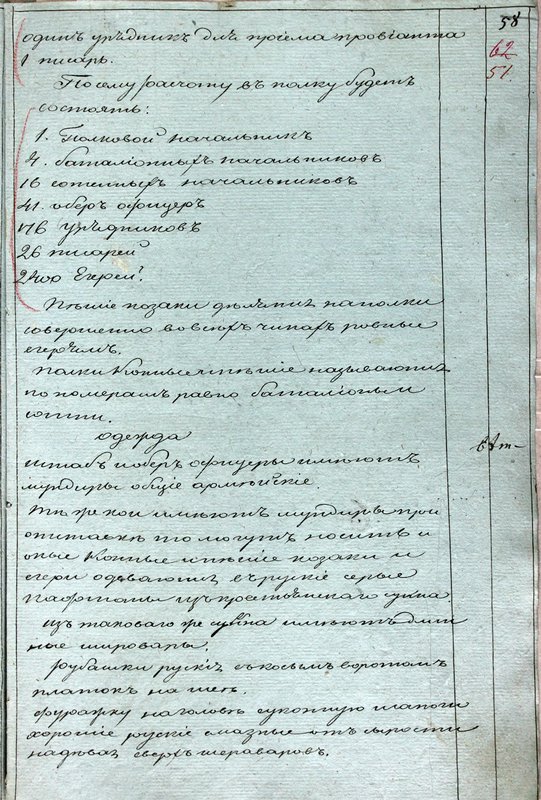 58
62
51
одинъ урядникъ для приема провіанта
1 писарь.
По сему расчоту въ полку будетъ
состоять:
1. Полковой начальникъ
4. баталіонныхъ начальниковъ
16 сотенныхъ начальниковъ
41. оберъ офицеръ
176 урядниковъ
26 писарей
2400 Егерей.
Пѣшіе козаки дѣлятся на полки
совершенно во всѣхъ чинахъ ровные
егерскимъ.
Полки Конные и пѣшіе называются
по номерамъ равно баталіоны и
сотни.
одежда
штабъ и оберъ офицеры имѣютъ
мундиры общіе армѣйскіе
тѣ же кои имѣютъ мундиры при
отставкѣ то могутъ носить и
оные Конные и пѣшіе козаки и
егери одеваются въ рускіе серые
кафтаны изъ простаго сукна
изъ таковаго же сукна имѣютъ длин
ные шировары.
рубашки рускія съ косымъ воротомъ
платокъ на шеѣ.
фуражку на головѣ суконную сапоги
хорошіе рускіе смазные отъ сырости
надѣвая сверхъ шераваровъ.